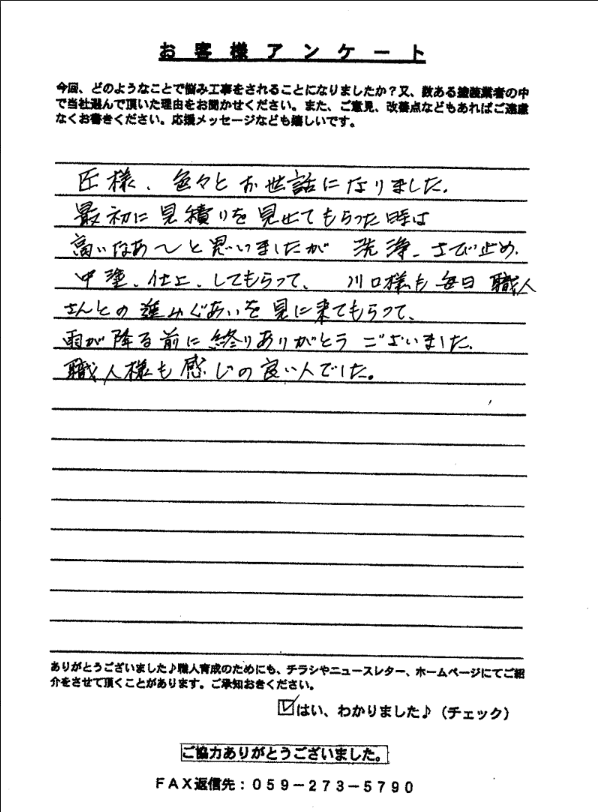 お客様アンケート
今回、どのようなことで悩み工事をされることになりましたか？又、数ある塗装業者の中
で当社選んで頂いた理由をお聞かせください。また、ご意見、改善点などもあればご遠慮
なくお書きください。応援メッセージなども嬉しいです。
匠様、色々とお世話になりました。
最初に見積りを見せてもらった時は
高いなあ〜と思いましたが 洗浄、さび止め、
中塗、仕上、してもらって、 川口様も毎日職人
さんとの進みぐあいを見に来てもらって、
雨が降る前に終りありがとうございました。
職人様も感じの良い人でした。
ありがとうございました♪職人育成のためにも、チラシやニュースレター、ホームページにてご紹
介をさせて頂くことがあります。ご承知おきください。
☑はい、わかりました♪（チェック）
ご協力ありがとうございました。
FAX返信先：059－273－5790